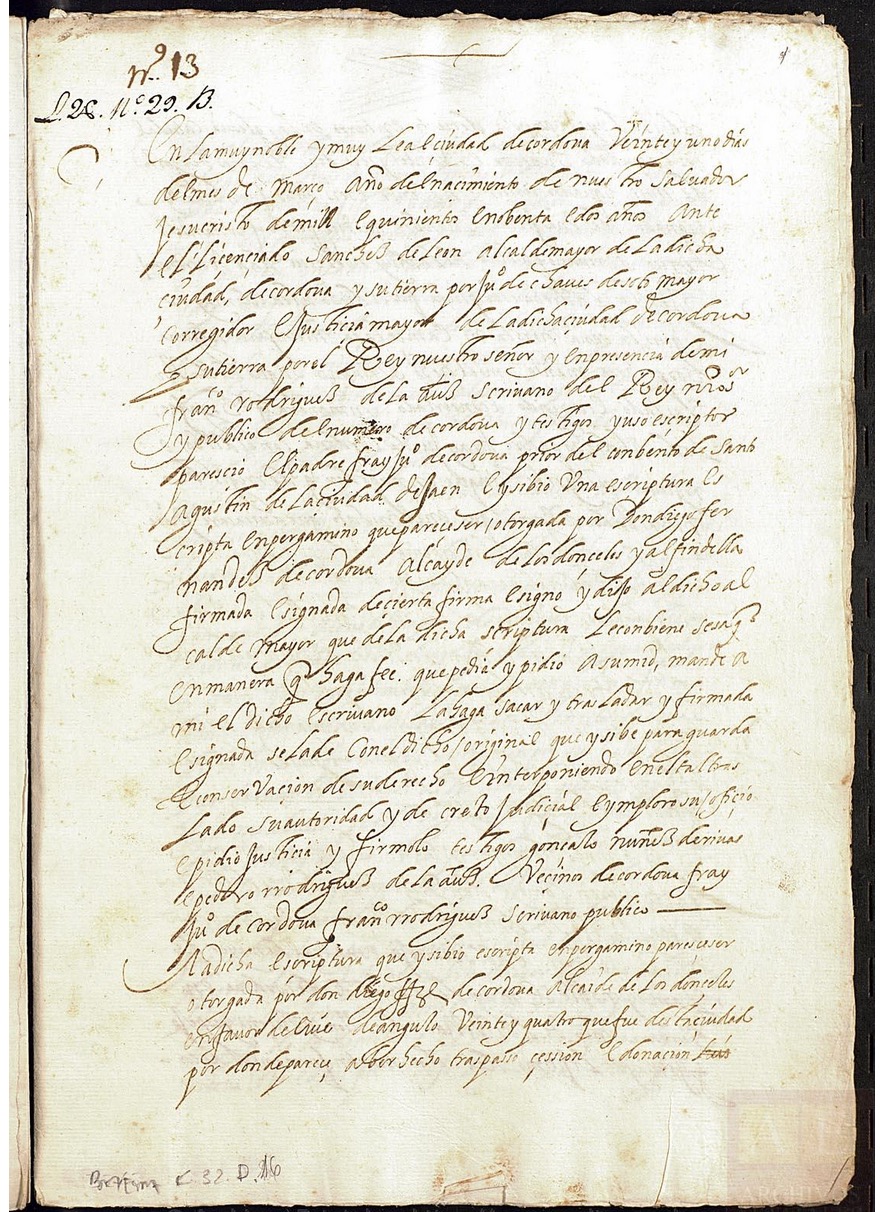 nº 13
L. 28. nº 29. B.
En la muy noble y muy Leal ciudad de cordova Veinte y uno dias
del mes de março año del nacimiento de nuestro Salvador
Jesucristo de mill e quinientos e nobenta e dos años Ante
el Licenciado Sanchez de Leon alcalde mayor de La dicha
ciudad, de cordova y su tierra por juº de chaves de soto mayor
corregidor e Justicia mayor de La dicha ciudad de cordova
E su tierra por el Rey nuestro señor y en presencia de mi
franco rodriguez de la Scrivano del Rey nro sor
y publico del numero de cordova y testigos yuso escriptos
parescio el padre fray juº de cordova prior del conbento de Sant
Agustin de La ciudad de Jaen E ysibio Una escriptura Es
cripta en pergamino que parece ser otorgada por Don diego fer
nandez de cordova Alcayde de Los donceles y al fin della
firmada e signada de cierta firma e signo y dijo al dicho al
calde mayor que de La dicha scriptura Le conbiene se saqe
en manera q haga fee. que pedia y pidio A su md, mande a
mi el Dicho Escrivano La haga sacar y trasLadar y firmada
e signada se La de Con el dicho original que ysibe para guarda
e conservacion de su derecho E interponiendo en el tal tras
Lado su autoridad y decreto Judicial e ymploro su oficio
e pidio Justicia y firmolo testigos gonçalo nuñez de rivas
e pedro rrodriguez de la Vecinos de cordova fray
juº de cordova franco rrodriguez scrivano publico
La dicha Escriptura que ysibio escripta en pergamino paresce ser
otorgada por don diego ffrz de cordova alcaide de Los donceles
en favor de de angulo Veinte y quatro que fue desta ciudad
por donde parece aber hecho traspasso çession e donación
C 32. D. 16